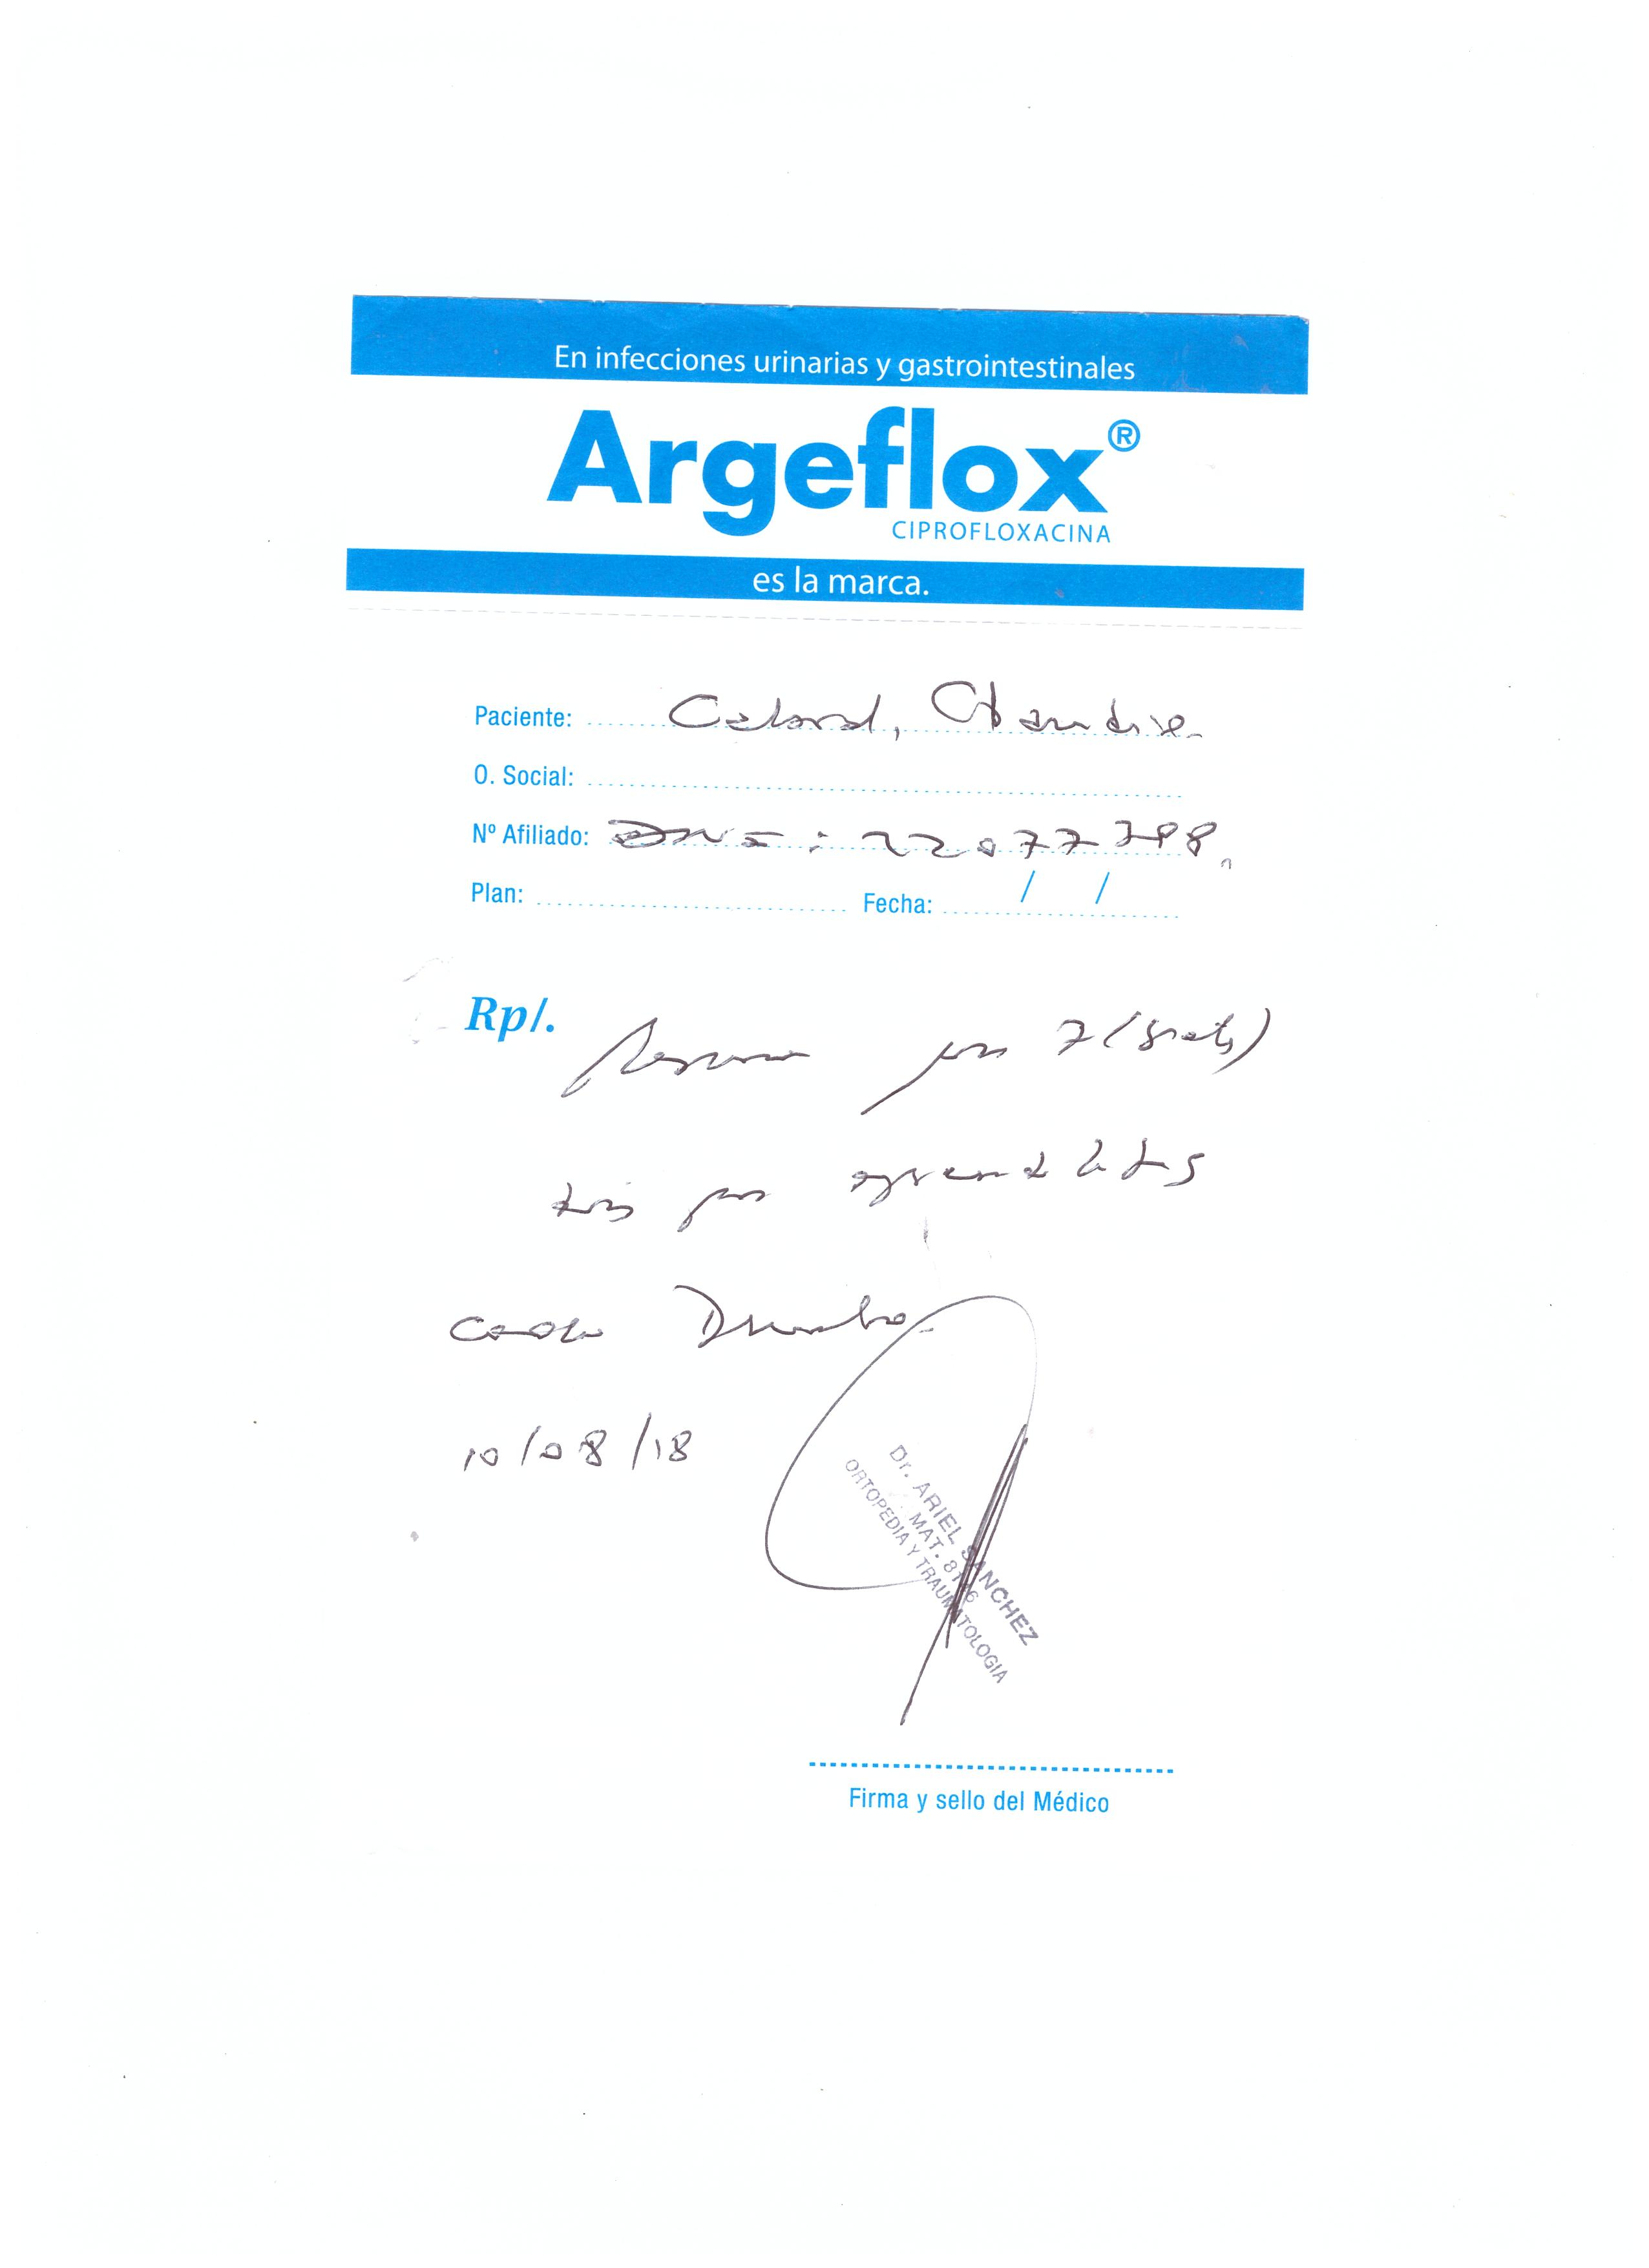 En infecciones urinarias y gastrointestinales
Argeflox®
CIPROFLOXACINA
es la marca.
Paciente: Claudia
O. Social:
Nº Afiliado: DNI: 22077398
Plan: Fecha: / /
Rp/. Reposo por 7 (siete)
días por
codo Derecho
10/08/18
Dr. ARIEL SANCHEZ
MAT.
ORTOPEDIA Y TRAUMATOLOGIA
Firma y sello del Médico